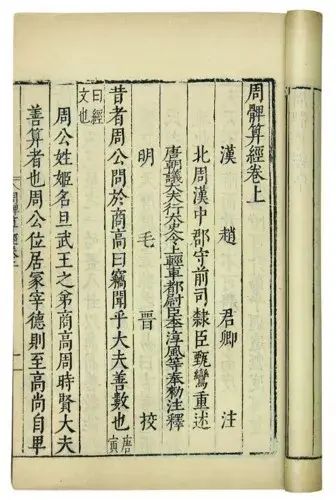 周髀算經卷上
漢 趙 君卿 注
北周漢中郡守前司隸臣甄鸞重述
唐朝議大夫行太史令上輕車都尉臣李淳風等奉勅注釋
明 毛 晋 挍
昔者周公問於商高曰竊聞乎大夫善數也 唐寅
曰經文也
周公姓姬名旦武王之弟商高周時賢大夫
善算者也周公位居冢宰德則至高尚自卑